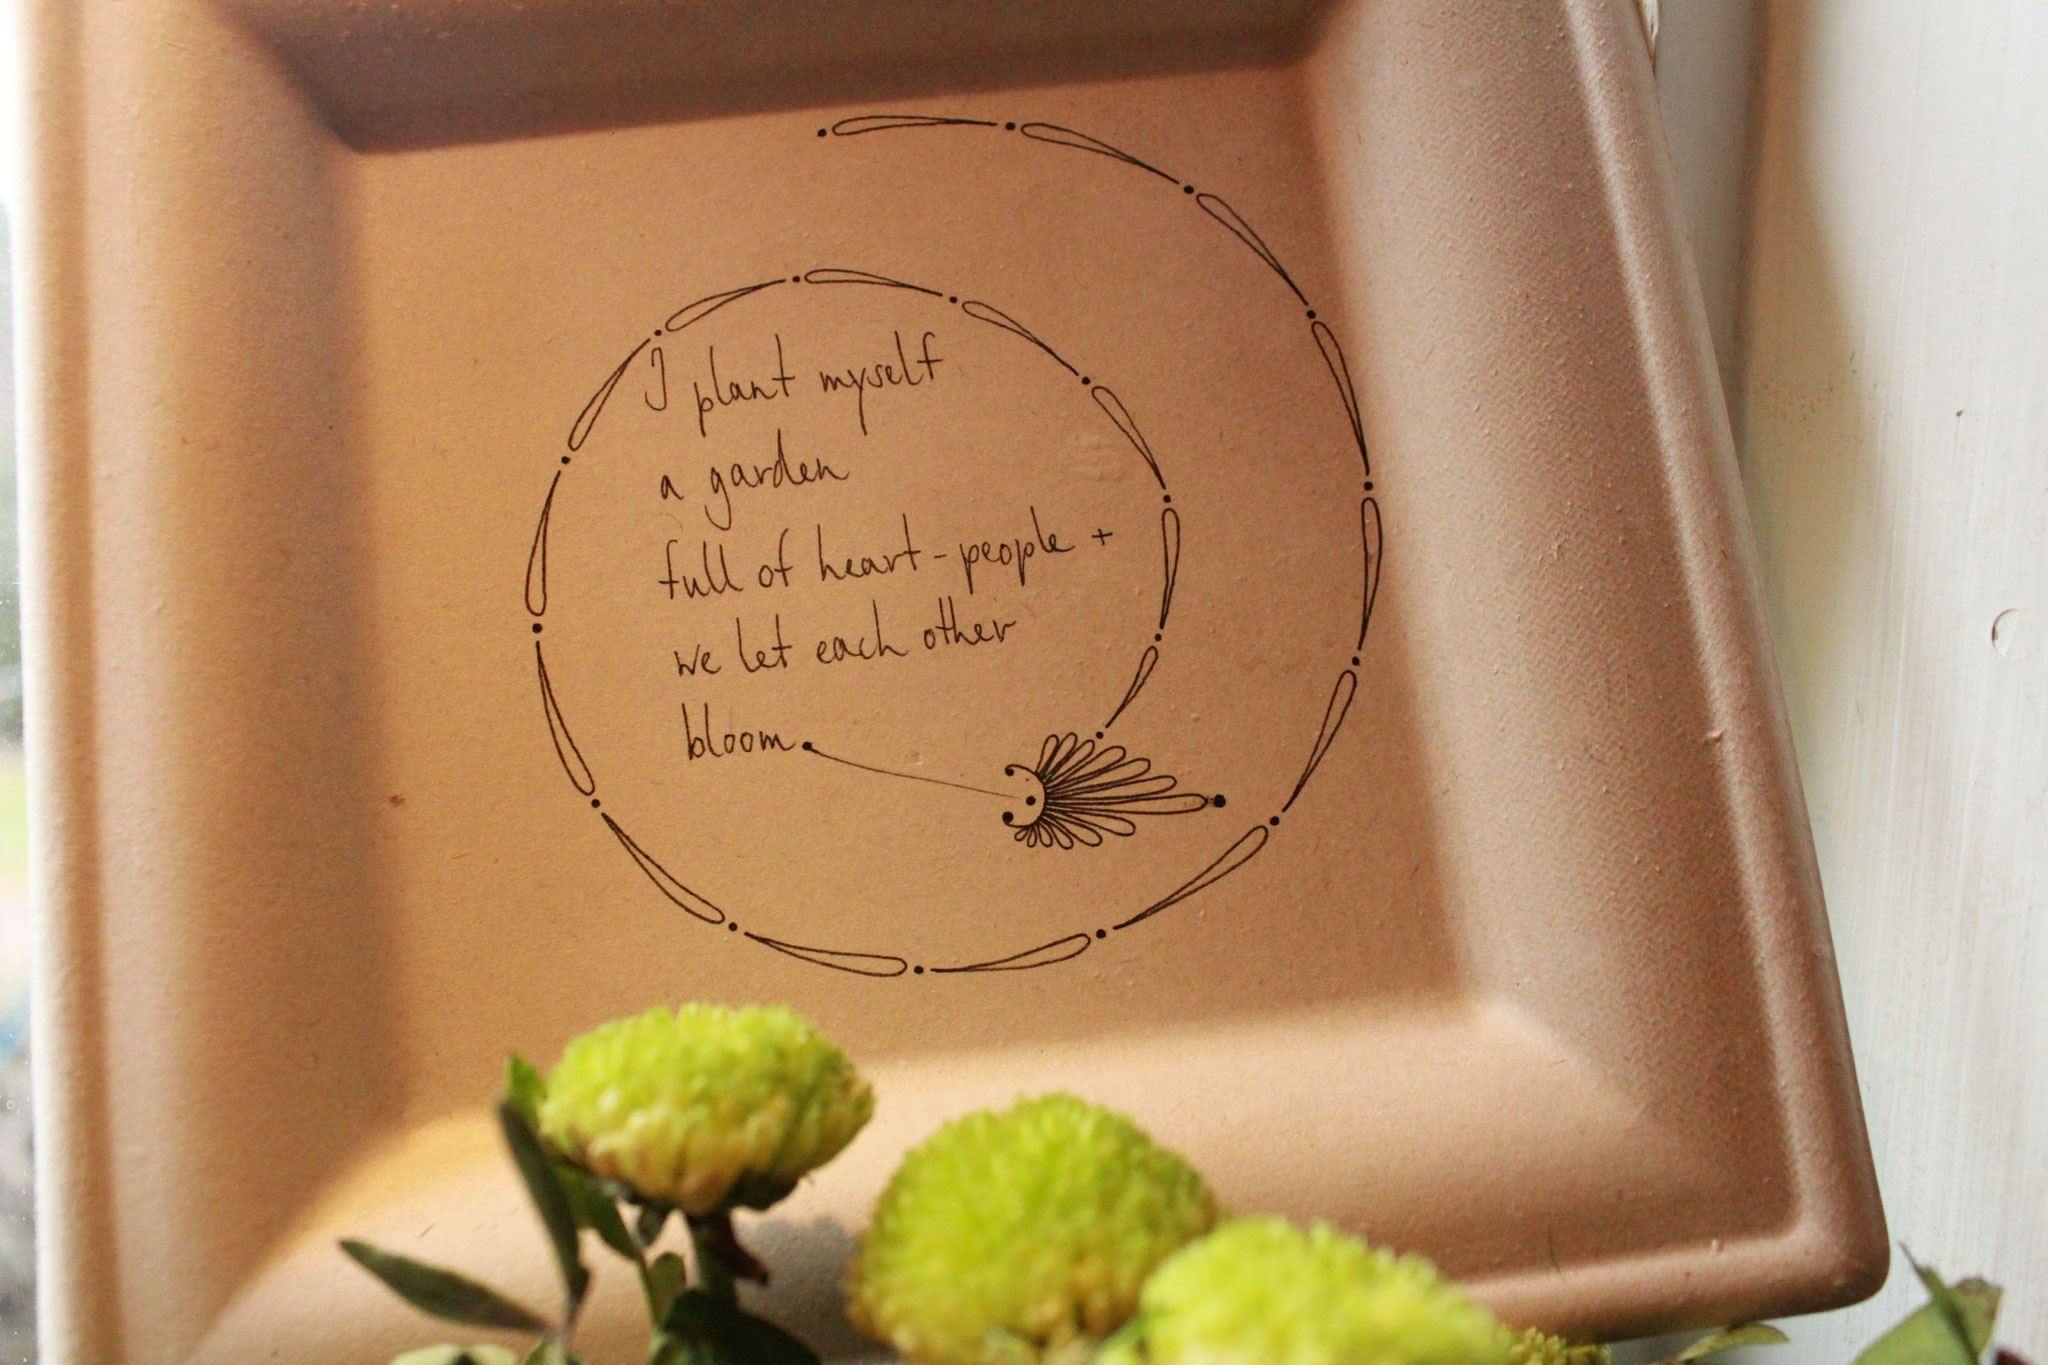 I plant myself
a garden
full of heart-people +
we let each other
bloom.